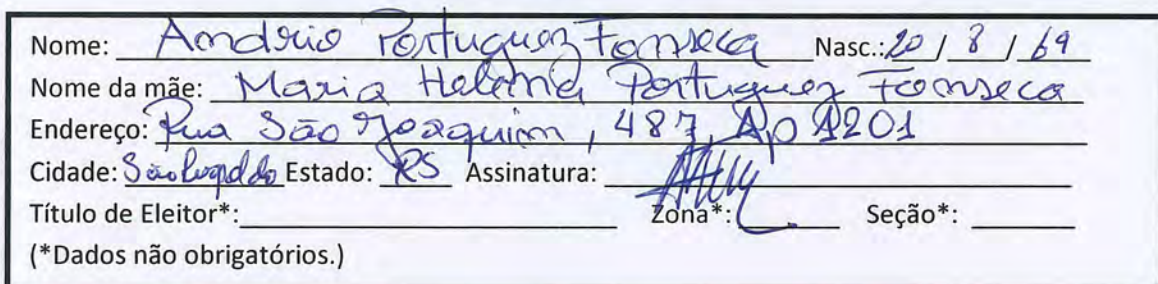 Nome: Andrio Portuguez Fonseca Nasc.: 20 / 8 / 69
Nome da mãe: Maria Helena Portuguez Fonseca
Endereço: Rua São Joaquim, 487, Ap 1201
Cidade: São Leopoldo Estado: RS Assinatura:
Título de Eleitor*: Zona*: Seção*:
(*Dados não obrigatórios.)